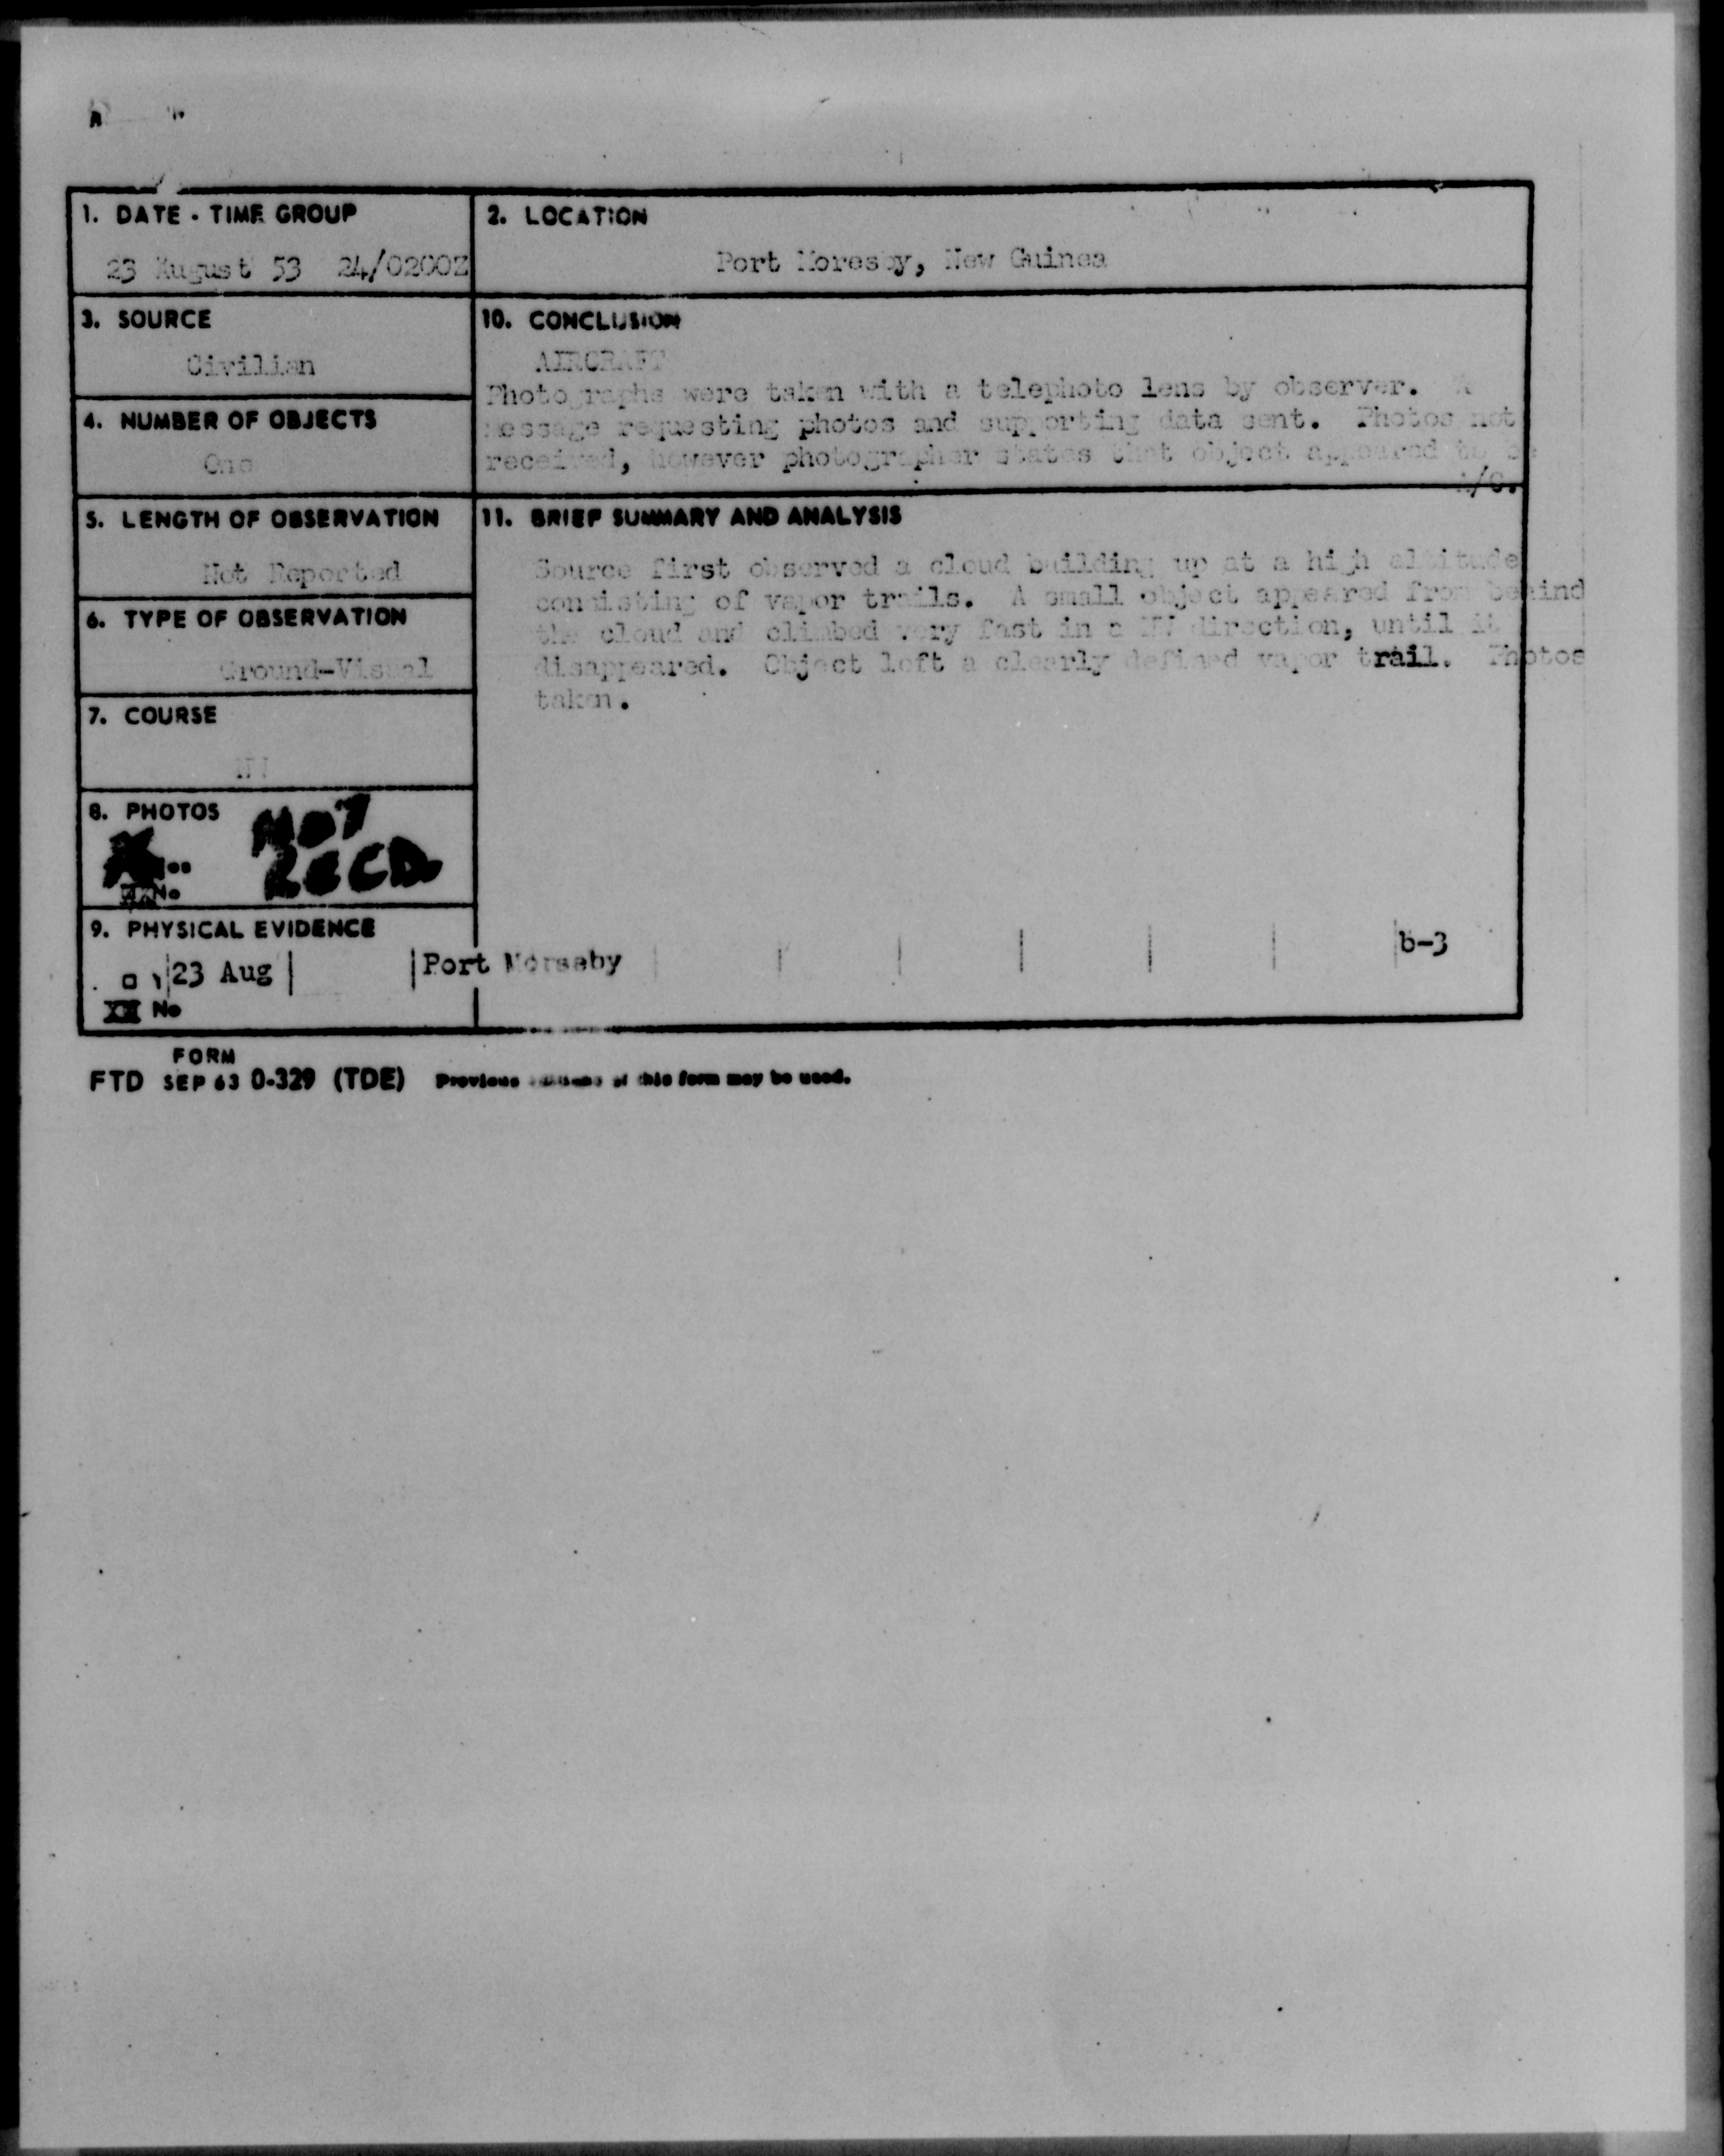 1. DATE - TIME GROUP
23 August 53 24/0200Z
2. LOCATION
Port Moresby, New Guinea
3. SOURCE
Civilian
10. CONCLUSION
AIRCRAFT
Photographs were taken with a telephoto lens by observer. A
message requesting photos and supporting data sent. Photos not
received, however photographer states that object appeared to be
A/C.
4. NUMBER OF OBJECTS
One
5. LENGTH OF OBSERVATION
Not Reported
11. BRIEF SUMMARY AND ANALYSIS
Source first observed a cloud building up at a high altitude
consisting of vapor trails. A small object appeared from behind
the cloud and climbed very fast in a NW direction, until it
disappeared. Object left a clearly defined vapor trail. Photos
taken.
6. TYPE OF OBSERVATION
Ground-Visual
7. COURSE
NW
8. PHOTOS
NOT
RECD
No
9. PHYSICAL EVIDENCE
23 Aug
Port Morseby
b-3
XX No
FORM
FTD SEP 63 0-329 (TDE) Previous editions of this form may be used.